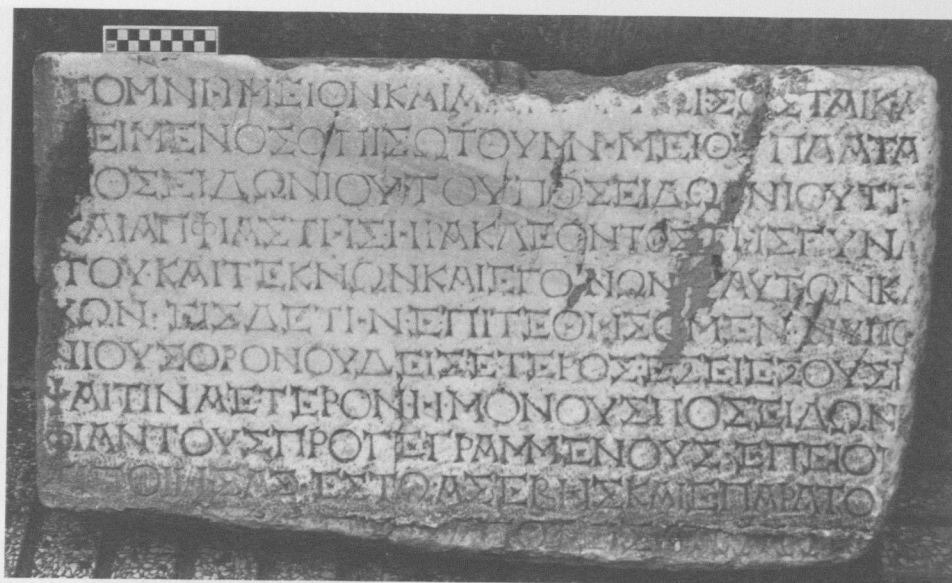 ΤΟΜΝΗΜΕΙΟΝΚΑΙ ΙΣΟΣΤΑΙΚΑ
ΕΙΜΕΝΟΣΟΠΙΣΩΤΟΥΜΝΗΜΕΙΟΥ ΠΛΑΤΑ
ΟΣΕΙΔΩΝΙΟΥΤΟΥΠΟΣΕΙΔΩΝΙΟΥΤΡ
ΚΑΙΑΠΦΙΑΣΤΗΣΗΡΑΚΛΕΟΝΤΟΣΤΗΣΓΥΝΑ
ΤΟΥΚΑΙΤΕΚΝΩΝΚΑΙΕΓΟΝΩΝ ΑΥΤΩΝΚΑ
ΧΩΝ·ΕΙΣΔΕΤΗΝΕΠΙΤΕΘΗΣΟΜΕΝΗΝΥΠΟ
ΝΙΟΥΣΟΡΟΝΟΥΔΕΙΣΕΤΕΡΟΣΕΞΕΙΕΞΟΥΣΙ
ΨΑΙΤΙΝΑΕΤΕΡΟΝΗΜΟΝΟΥΣΠΟΣΕΙΔΩΝ
ΦΙΑΝΤΟΥΣΠΡΟΓΕΓΡΑΜΜΕΝΟΥΣΕΠΕΙΟ
ΠΟΙΗΣΑΣΕΣΤΩΑΣΕΒΗΣΚΑΙΕΠΑΡΑΤΟ